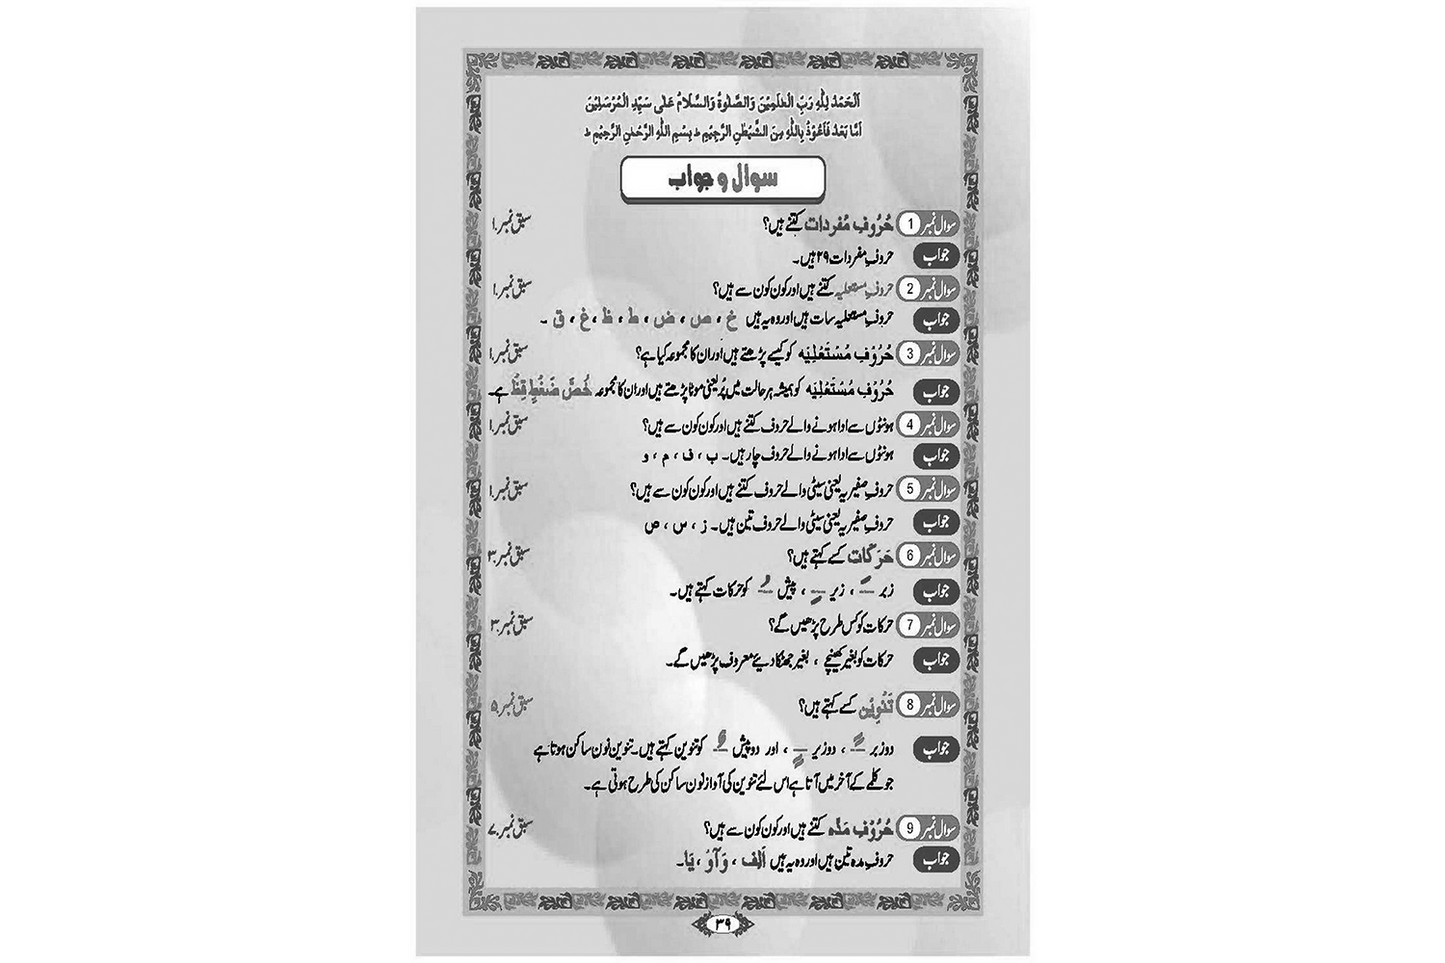 اَلْحَمْدُ لِلّٰهِ رَبِّ الْعٰلَمِیْنَ وَالصَّلٰوةُ وَالسَّلَامُ عَلٰی سَیِّدِ الْمُرْسَلِیْنَ
اَمَّا بَعْدُ فَاَعُوْذُ بِاللّٰهِ مِنَ الشَّیْطٰنِ الرَّجِیْمِ ط بِسْمِ اللّٰهِ الرَّحْمٰنِ الرَّحِیْمِ ط
سوال و جواب
سوال نمبر 1 حُرُوفِ مُفردات کتنے ہیں؟ سبق نمبر۱
جواب حروفِ مفردات ۲۹ ہیں۔
سوال نمبر 2 حروفِ مستعلیہ کتنے ہیں اور کون کون سے ہیں؟ سبق نمبر۱
جواب حروفِ مستعلیہ سات ہیں اور وہ یہ ہیں خ ، ص ، ض ، ط ، ظ ، غ ، ق ۔
سوال نمبر 3 حُرُوْفِ مُسْتَعْلِیَہ کو کیسے پڑھتے ہیں اور ان کا مجموعہ کیا ہے؟ سبق نمبر۱
جواب حُرُوْفِ مُسْتَعْلِیَہ کو ہمیشہ ہر حالت میں پُر یعنی موٹا پڑھتے ہیں اور ان کا مجموعہ خُصَّ ضَغْطٍ قِظْ ہے۔
سوال نمبر 4 ہونٹوں سے ادا ہونے والے حروف کتنے ہیں اور کون کون سے ہیں؟ سبق نمبر۱
جواب ہونٹوں سے ادا ہونے والے حروف چار ہیں۔ ب ، ف ، م ، و
سوال نمبر 5 حروفِ صفیریہ یعنی سیٹی والے حروف کتنے ہیں اور کون کون سے ہیں؟ سبق نمبر۱
جواب حروفِ صفیریہ یعنی سیٹی والے حروف تین ہیں۔ ز ، س ، ص
سوال نمبر 6 حَرَکَات کسے کہتے ہیں؟ سبق نمبر۳
جواب زبر ـَ ، زیر ـِ ، پیش ـُ کو حرکات کہتے ہیں۔
سوال نمبر 7 حرکات کو کس طرح پڑھیں گے؟ سبق نمبر۳
جواب حرکات کو بغیر کھینچے ، بغیر جھٹکا دیئے معروف پڑھیں گے۔
سوال نمبر 8 تَنْوِیْن کسے کہتے ہیں؟ سبق نمبر۵
جواب دو زبر ـً ، دو زیر ـٍ ، اور دو پیش ـٌ کو تنوین کہتے ہیں۔ تنوین نون ساکن ہوتا ہے
جو کلمے کے آخر میں آتا ہے اس لئے تنوین کی آواز نون ساکن کی طرح ہوتی ہے۔
سوال نمبر 9 حُرُوْفِ مَدَّہ کتنے ہیں اور کون کون سے ہیں؟ سبق نمبر۷
جواب حروفِ مدہ تین ہیں اور وہ یہ ہیں اَلِف ، وَاؤ ، یَا۔
۳۹